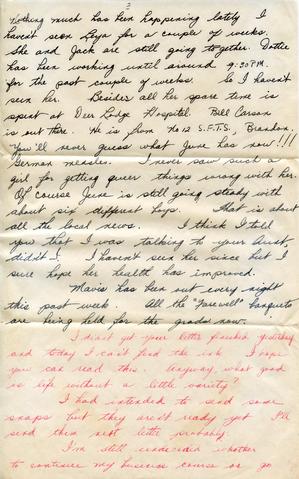 3
Nothing much has been happening lately I
haven't seen Lyga for a couple of weeks.
She and Jack are still going together. Dottie
has been working until around 9:30 P.M.
for the past couple of weeks. So I haven't
seen her. Besides all her spare time is
spent at Deer Lodge Hospital. Bill Carson
is out there. He is from No 12 S.F.T.S. Brandon.
You'll never guess what June has now!!!
German measles. I never saw such a
girl for getting queer things wrong with her.
Of course June is still going steady with
about six different boys. That is about
all the local news. I think I told
you that I was talking to your Aunt,
didn't I I haven't seen her since but I
sure hope her health has improved.
Mavis has been out every night
this past week. All the "farewell" banquets
are being held for the grads now.
I didn't get your letter finished yesterday
and today I can't find the ink I hope
you can read this. Anyway, what good
is life without a little variety?
I had intended to send some
snaps but they aren't ready yet I'll
send them next letter probably.
I'm still undecided whether
to continue my business course or go